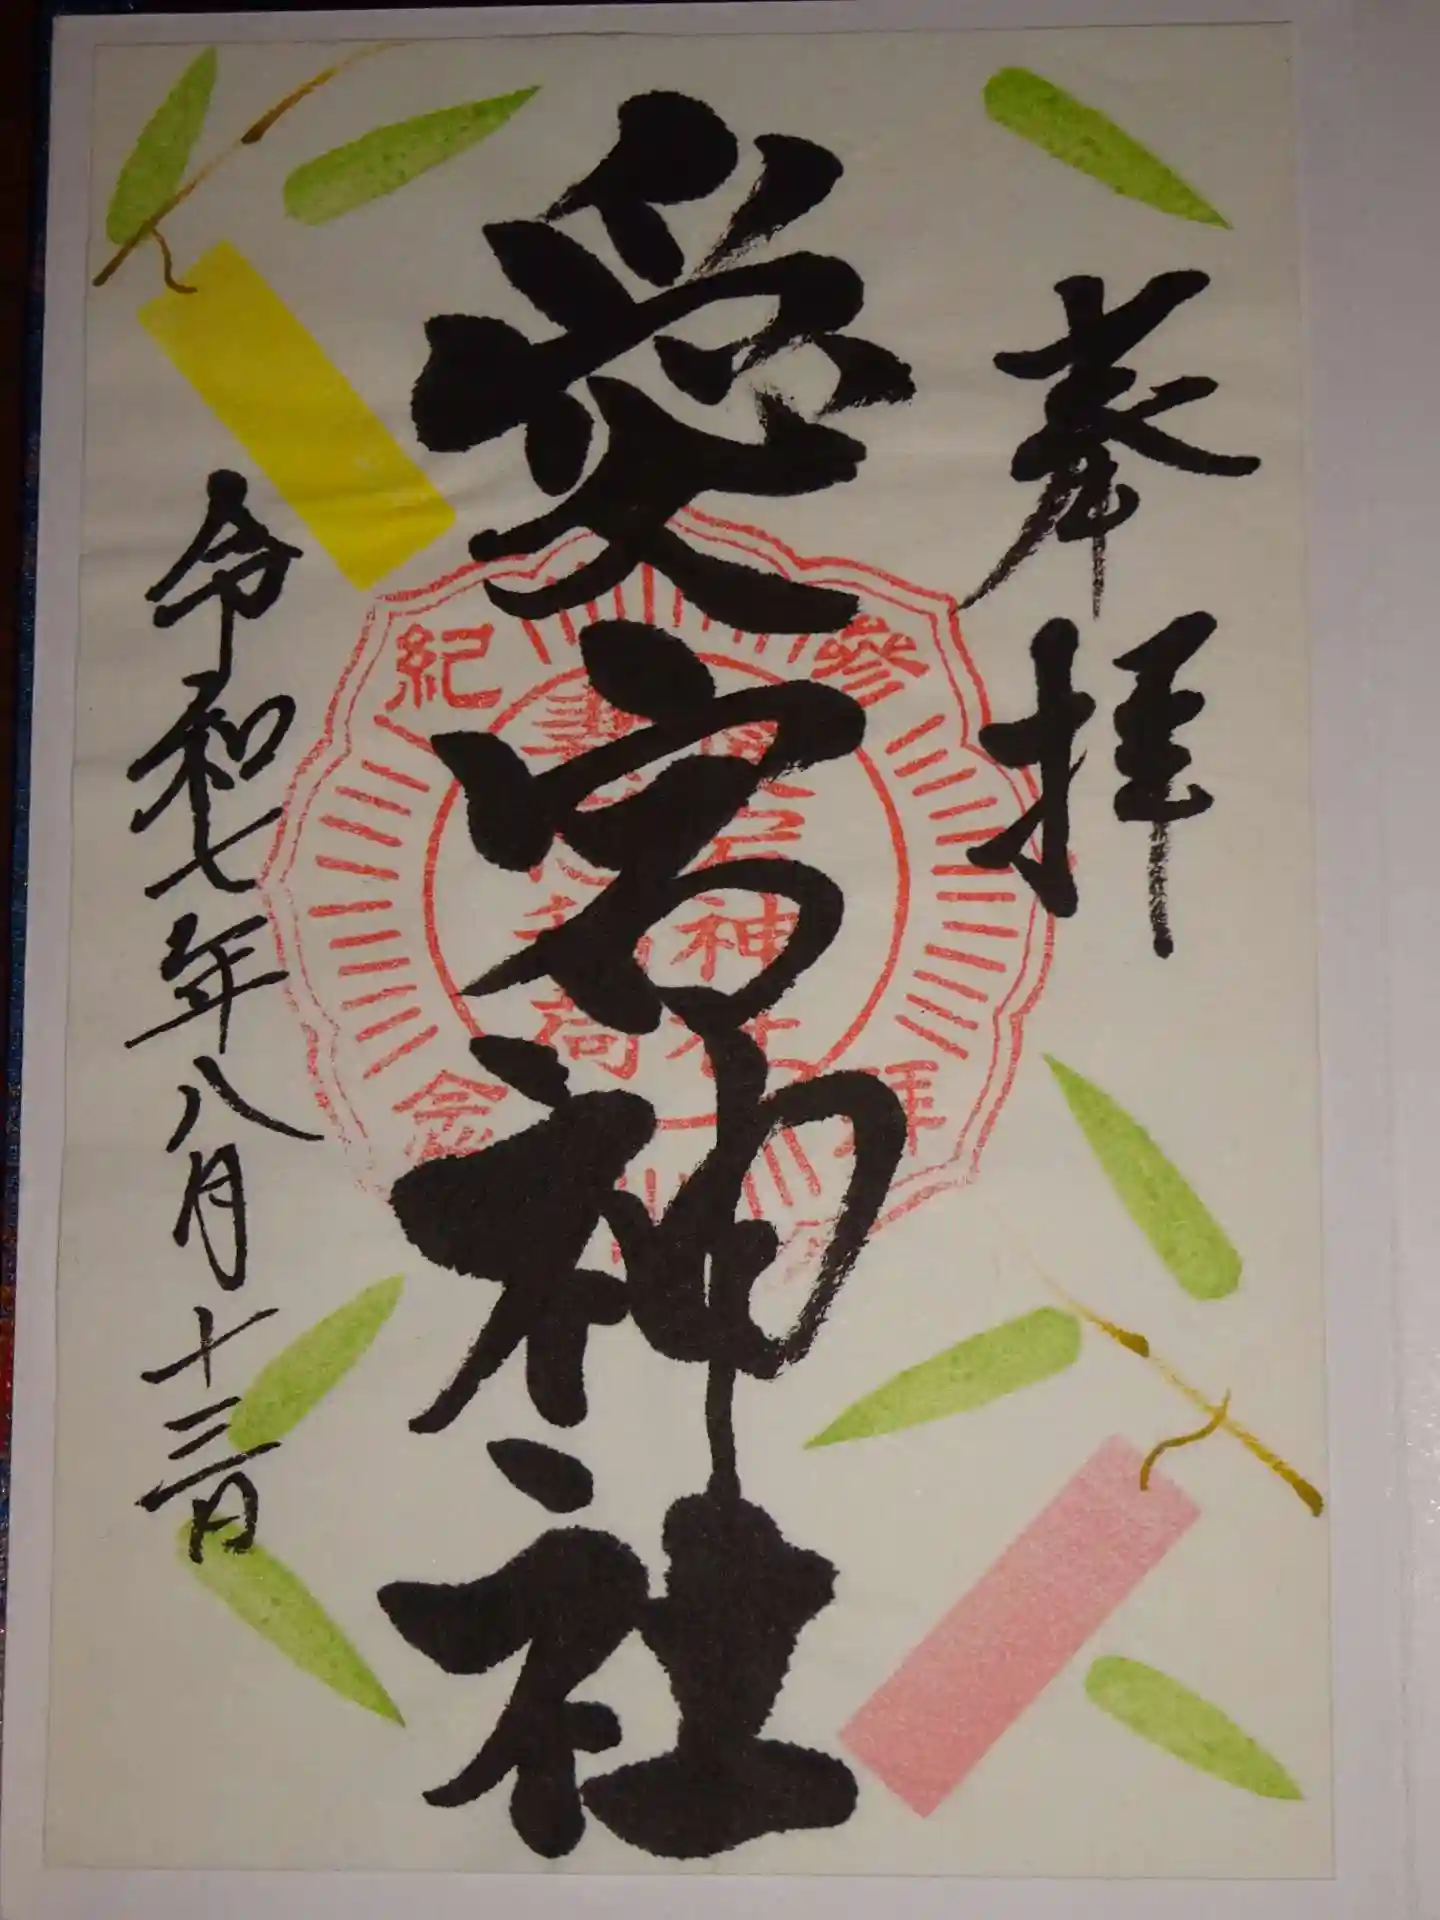 奉拝
愛宕神社
令和七年八月十三日
参拝
紀念
神社